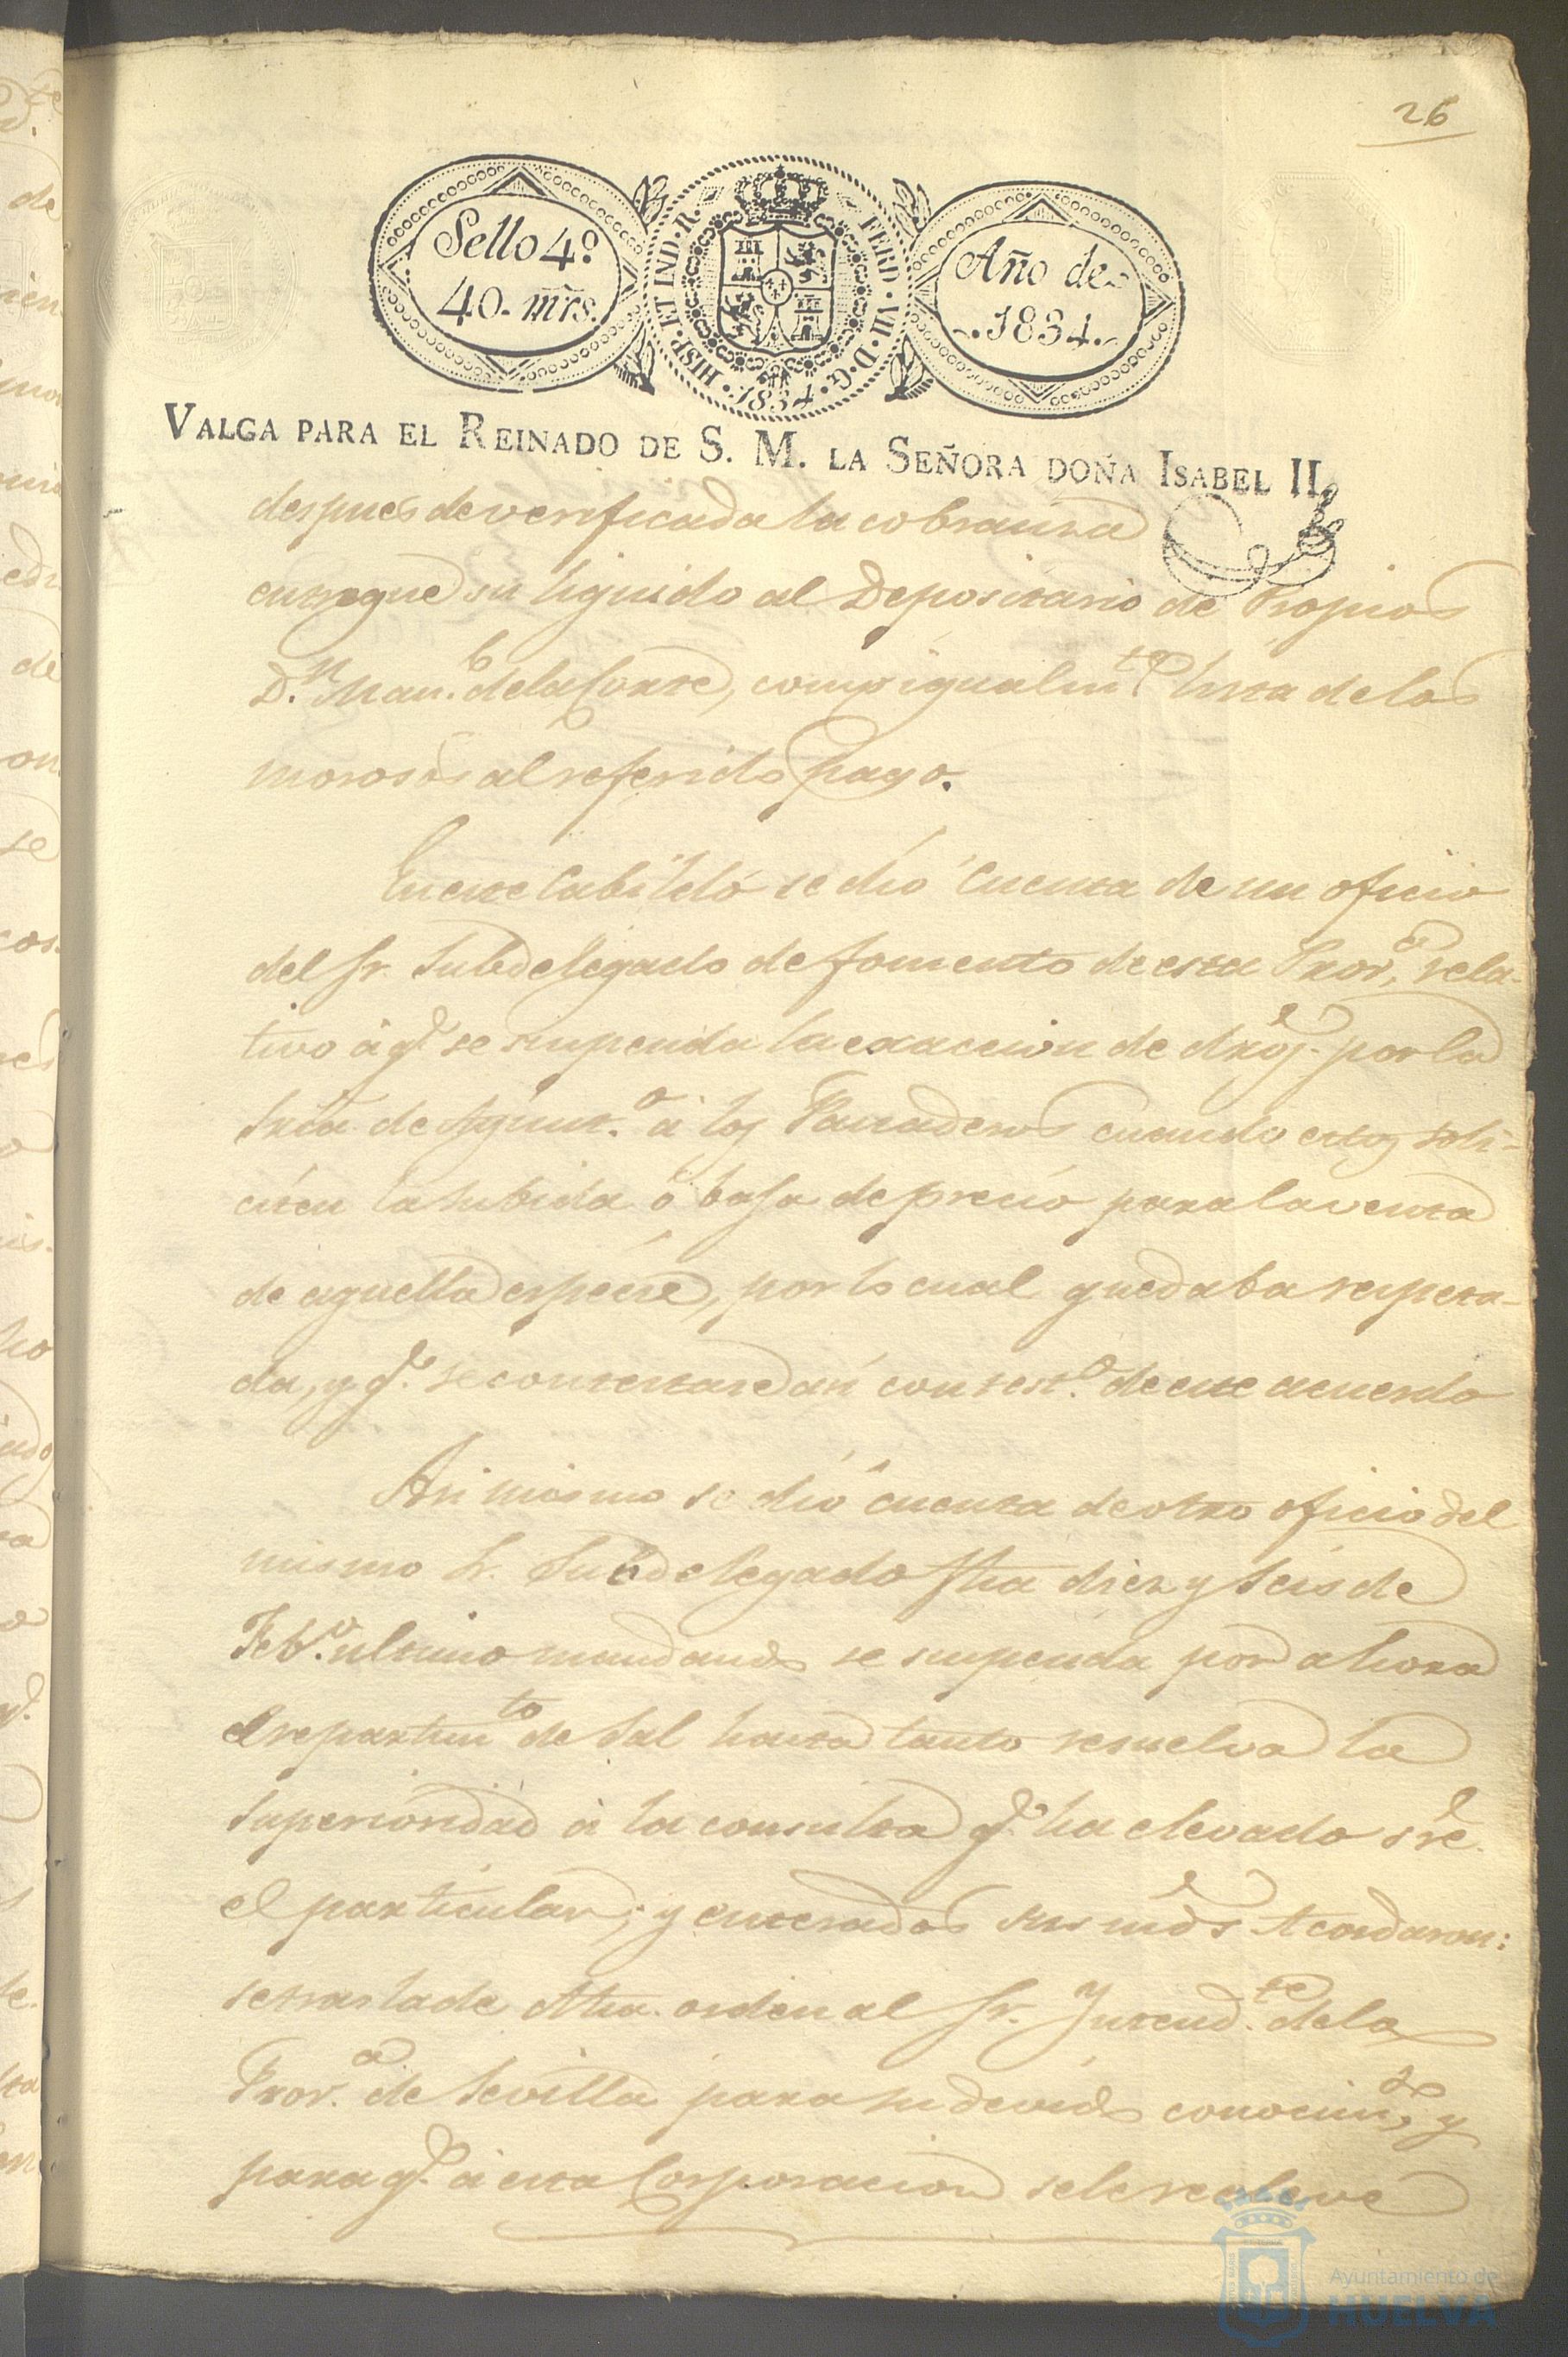 26
Sello 4º
40. mrs.
HISP. ET IND. R.
FERD. VII. D. G.
1834
Año de
1834.
VALGA PARA EL REINADO DE S. M. LA SEÑORA DOÑA ISABEL II.
despues de verificada la cobranza
entregue su liquido al Depositario de Propios
D.n Man.l de la Corte, como igualm.te lista de los
morosos al referido pago.
En este Cabildo se dió cuenta de un oficio
del Sr. Subdelegado de fomento de esta Prov.a rela-
tivo á q.e se suspenda la exaccion de dros. por la
Sria. de Ayunt.o á los Panaderos cuando estos soli-
citen la subida ó baja de precio para la venta
de aquella especie, por lo cual quedaba
da, y q.e se contestase con test.o de este acuerdo
Asi mismo se dió cuenta de otro oficio del
mismo Sr. Subdelegado fha diez y seis de
Feb.o ultimo mandando se suspenda por ahora
el repartim.to de Sal hasta tanto resuelva la
Superioridad á la consulta q.e ha elevado sre.
el particular; y enterados sus mds Acordaron:
se traslade dha. orden al Sr. Intend.te de la
Prov.a de Sevilla para su devido conocim.to, y
para q.e á esta Corporacion se le releve
Ayuntamiento de
HUELVA